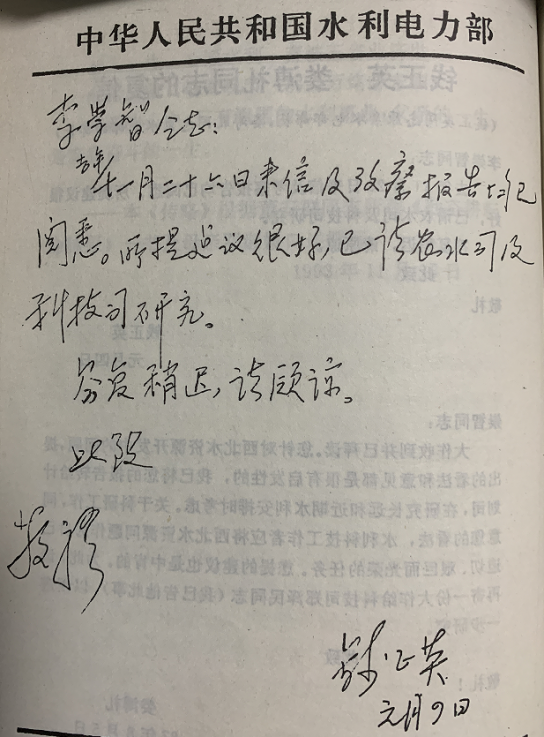 中华人民共和国水利电力部
李学智同志:
去年十一月二十六日来信及考察报告均已
阅悉。所提建议很好,已请农水司及
科技司研究。
答复稍迟,请原谅。
此致
敬礼
钱正英
元月9日